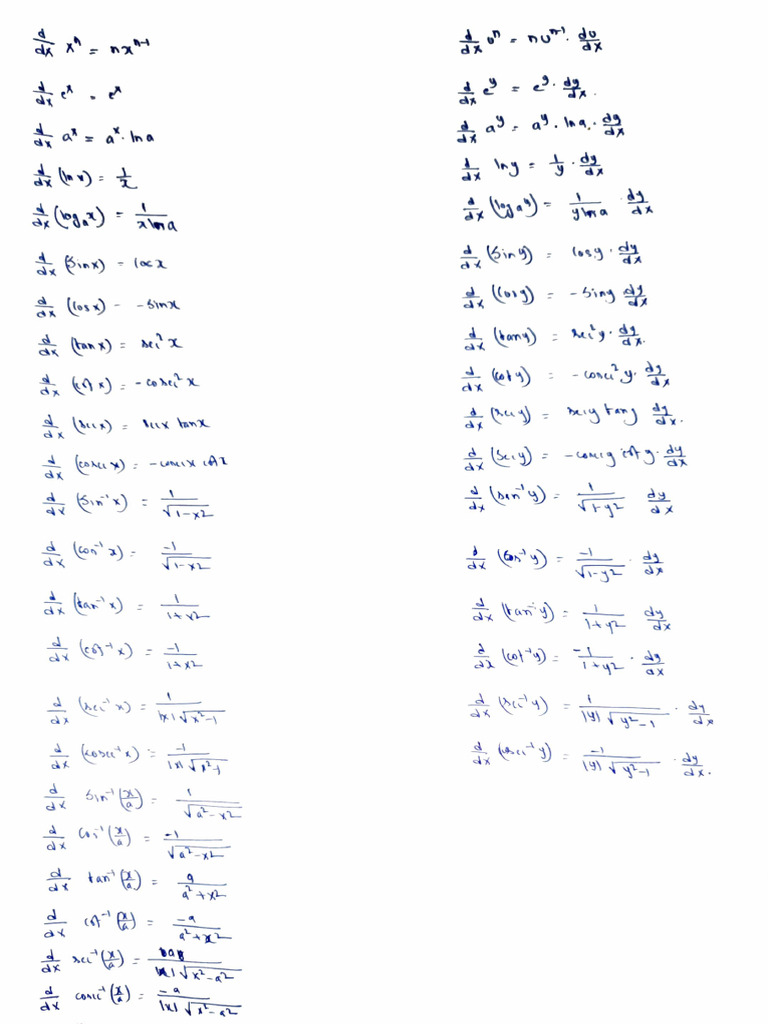 d/dx xⁿ = nxⁿ⁻¹
d/dx eˣ = eˣ
d/dx aˣ = aˣ · ln a
d/dx (ln x) = 1/x
d/dx (logₐx) = 1/(x ln a)
d/dx (sin x) = cos x
d/dx (cos x) - -sin x
d/dx (tan x) = sec²x
d/dx (cot x) = -cosec²x
d/dx (sec x) = sec x tan x
d/dx (cosec x) = -cosec x cot x
d/dx (sin⁻¹x) = 1/√(1-x²)
d/dx (cos⁻¹x) = -1/√(1-x²)
d/dx (tan⁻¹x) = 1/(1+x²)
d/dx (cot⁻¹x) = -1/(1+x²)
d/dx (sec⁻¹x) = 1/(|x|√(x²-1))
d/dx (cosec⁻¹x) = -1/(|x|√(x²-1))
d/dx sin⁻¹(x/a) = 1/√(a²-x²)
d/dx cos⁻¹(x/a) = -1/√(a²-x²)
d/dx tan⁻¹(x/a) = a/(a²+x²)
d/dx cot⁻¹(x/a) = -a/(a²+x²)
d/dx sec⁻¹(x/a) = a/(|x|√(x²-a²))
d/dx cosec⁻¹(x/a) = -a/(|x|√(x²-a²))
d/dx uⁿ = nuⁿ⁻¹ · du/dx
d/dx eʸ = eʸ · dy/dx.
d/dx aʸ = aʸ · ln a · dy/dx
d/dx ln y = 1/y · dy/dx
d/dx (logₐy) = 1/(y ln a) · dy/dx
d/dx (sin y) = cos y · dy/dx
d/dx (cos y) = -sin y dy/dx
d/dx (tan y) = sec²y · dy/dx.
d/dx (cot y) = -cosec²y · dy/dx
d/dx (sec y) = sec y tan y dy/dx.
d/dx (sec y) = -cosec y cot y · dy/dx
d/dx (sin⁻¹y) = 1/√(1-y²) dy/dx
d/dx (cos⁻¹y) = -1/√(1-y²) · dy/dx
d/dx (tan⁻¹y) = 1/(1+y²) dy/dx
d/dx (cot⁻¹y) = -1/(1+y²) · dy/dx
d/dx (sec⁻¹y) = 1/(|y|√(y²-1)) · dy/dx
d/dx (cosec⁻¹y) = -1/(|y|√(y²-1)) · dy/dx.